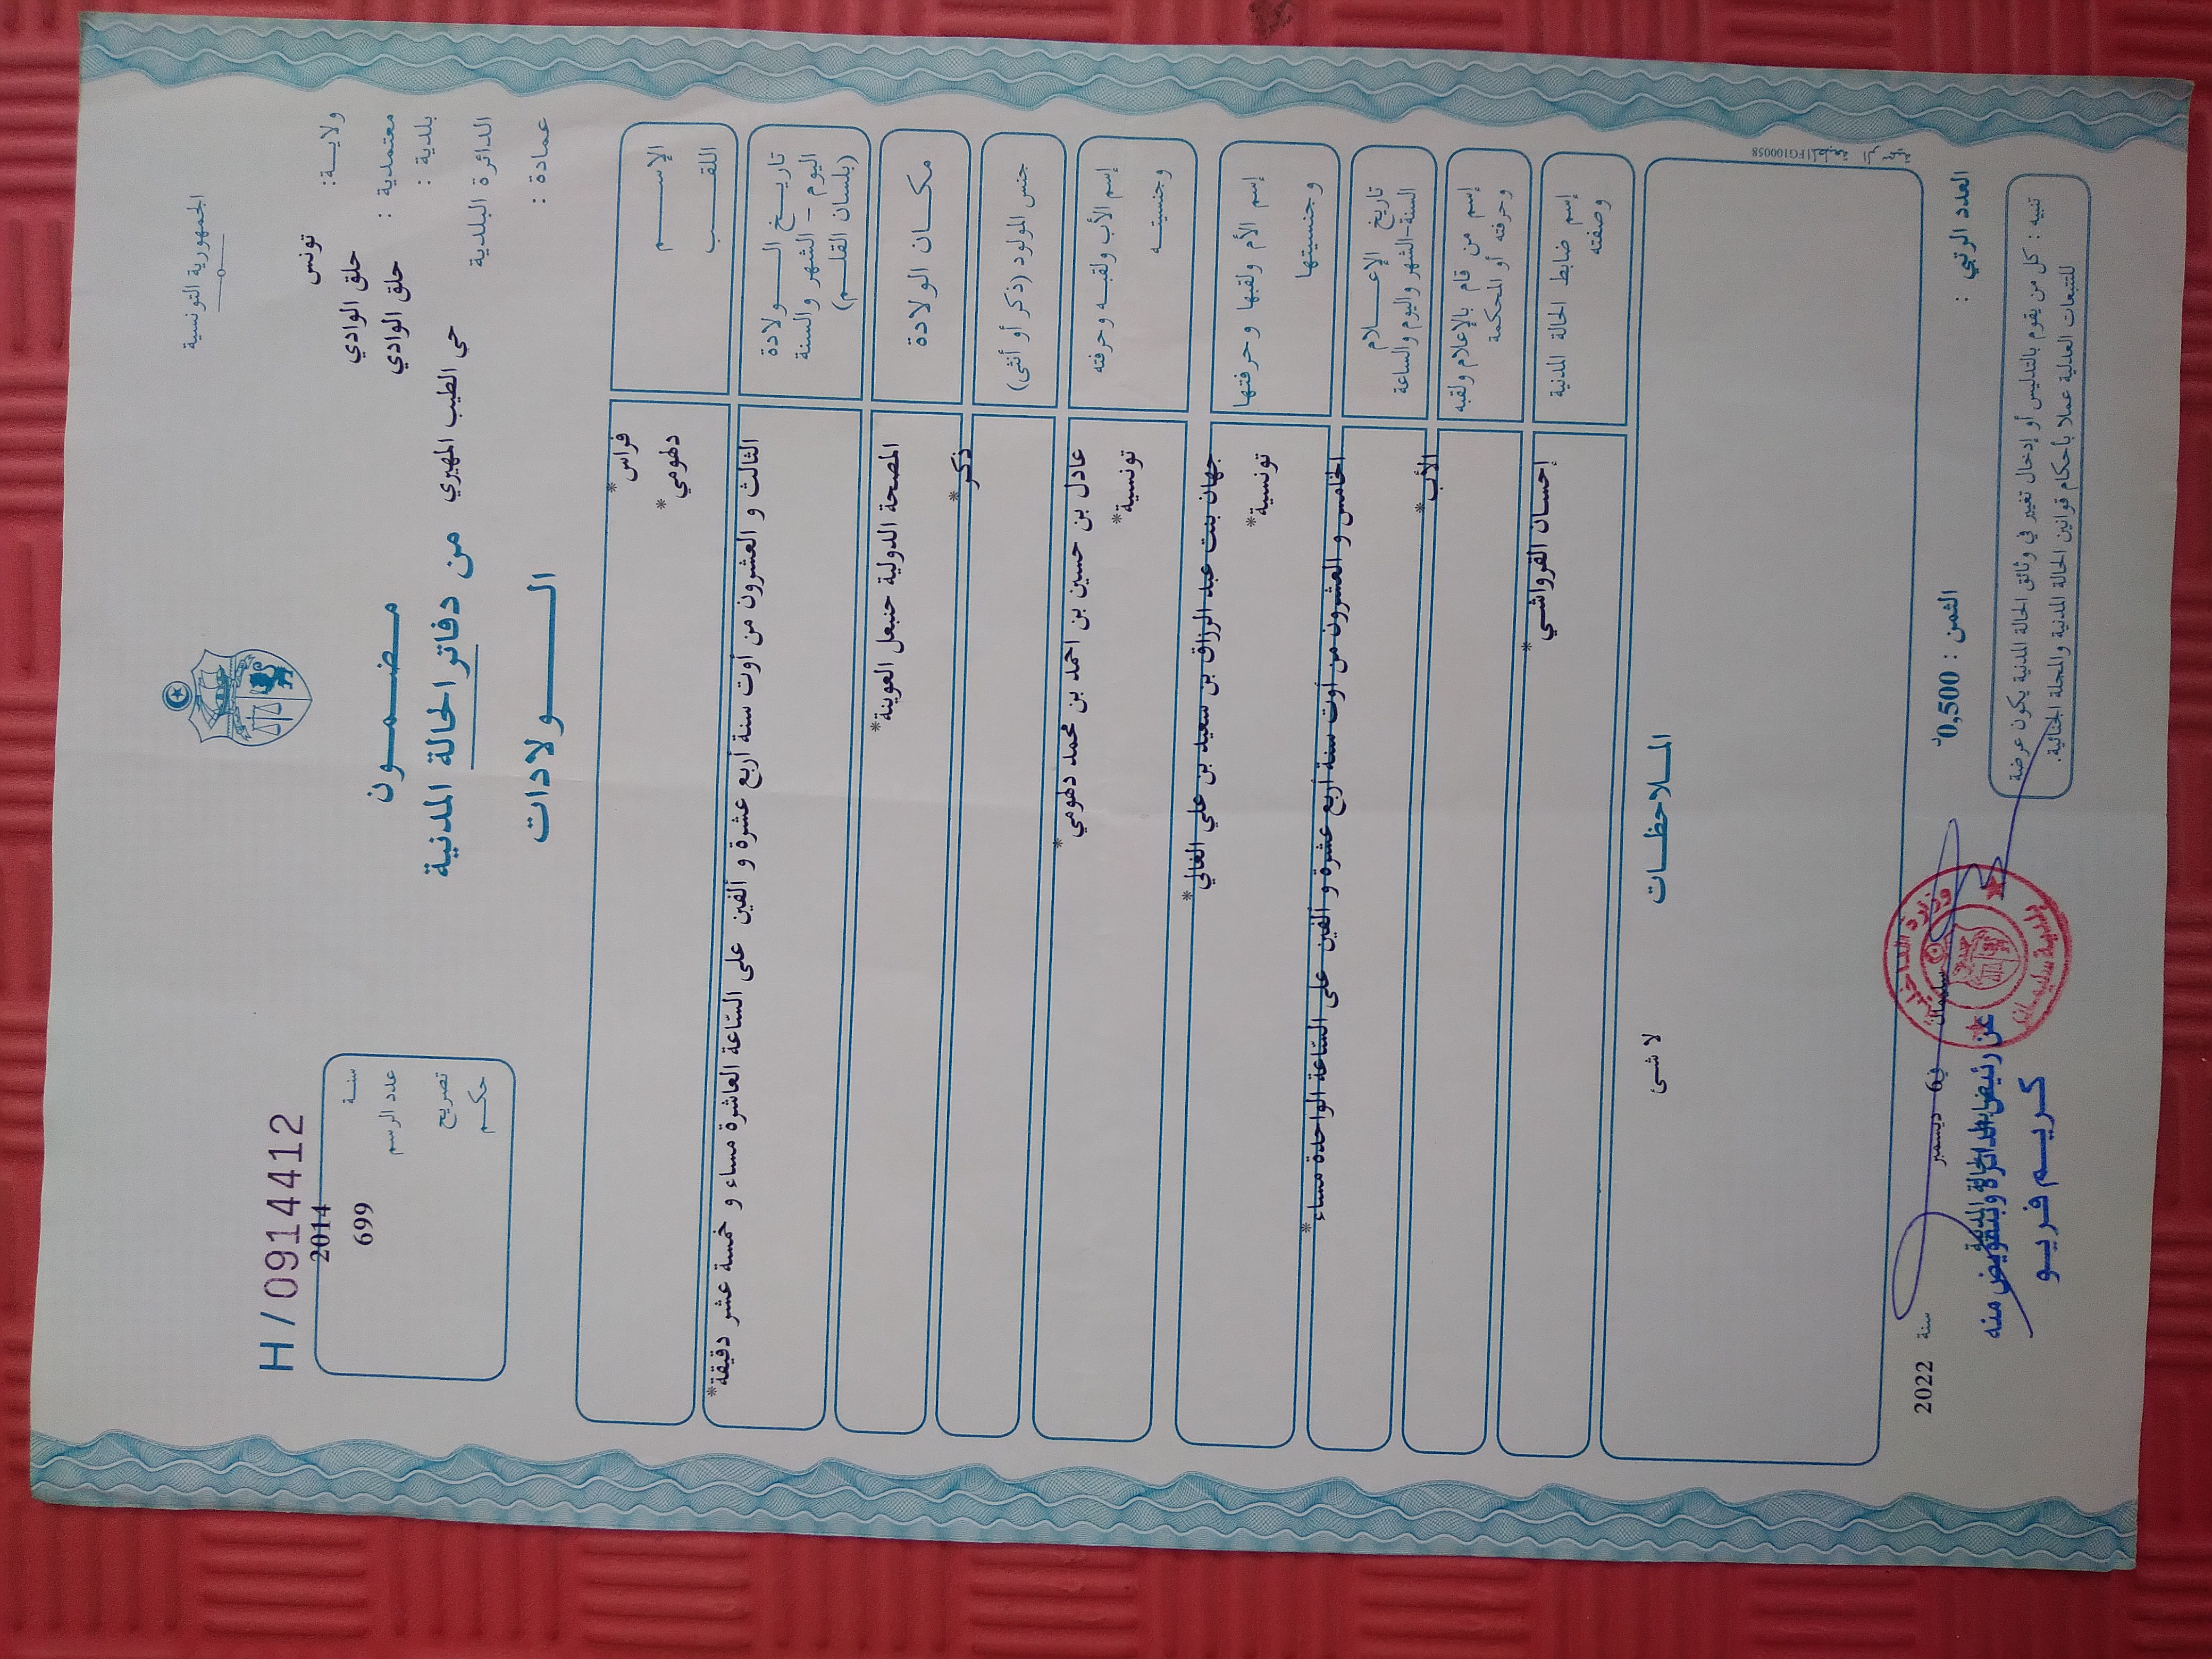 الجمهورية التونسية
ولايـــة: تونس
معتمدية : حلق الوادي
بلدية : حلق الوادي
الدائرة البلدية حي الطيب المهيري
عمادة :
مضـمـــون
من دفاتر الحالة المدنية
الـــــولادات
H / 0914412
سنــة 2014
عدد الرسم 699
تصريح
حكـم
الإســـــم
اللقـــب
فراس*
دهومي*
تاريــخ الـــولادة
اليوم - الشهر والسنة
(بلسان القلـــم)
الثالث و العشرون من أوت سنة أربع عشرة و ألفين على السّاعة العاشرة مساء و خمسة عشر دقيقة*
مكـــان الولادة
المصحة الدولية حنبعل العوينة*
جنس المولود (ذكر أو أنثى)
ذكر*
إسم الأب ولقبــه وحرفته
وجنسيتــه
عادل بن حسين بن احمد بن محمد دهومي*
تونسية*
إسم الأم ولقبها وحرفتها
وجنسيتها
جهان بنت عبد الرزاق بن سعيد بن علي الغالي*
تونسية*
تاريخ الإعـــلام
السنة-الشهر واليوم والساعة
الخامس و العشرون من أوت سنة أربع عشرة و ألفين على السّاعة الواحدة مساء*
إسم من قام بالإعلام ولقبه
وحرفته أو المحكمة
الأب*
إسم ضابط الحالة المدنية
وصفته
إحسان القرواشي*
المـلاحظـــات
لا شئ
العدد الرتبي :
الثمن : 0,500د
سليمان في 6 ديسمبر سنة 2022
تنبيه : كل من يقوم بالتدليس أو إدخال تغيير في وثائق الحالة المدنية يكون عرضة
للتتبعات العدلية عملا بأحكام قوانين الحالة المدنية والمجلة الجنائية.
وزارة الداخلية
بلدية سليمان
عن رئيس الدائرة وبتفويض منه
كريـــم فريـــو